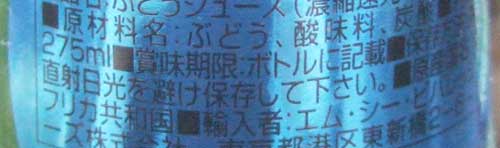 名:ぶどうジュース(濃縮還元
■原材料名:ぶどう、酸味料、炭酸
275ml■賞味期限:ボトルに記載■保存
直射日光を避け保存して下さい。■原産
フリカ共和国■輸入者:エム・シー・
ーズ株式会社 東京都港区東新橋2-8